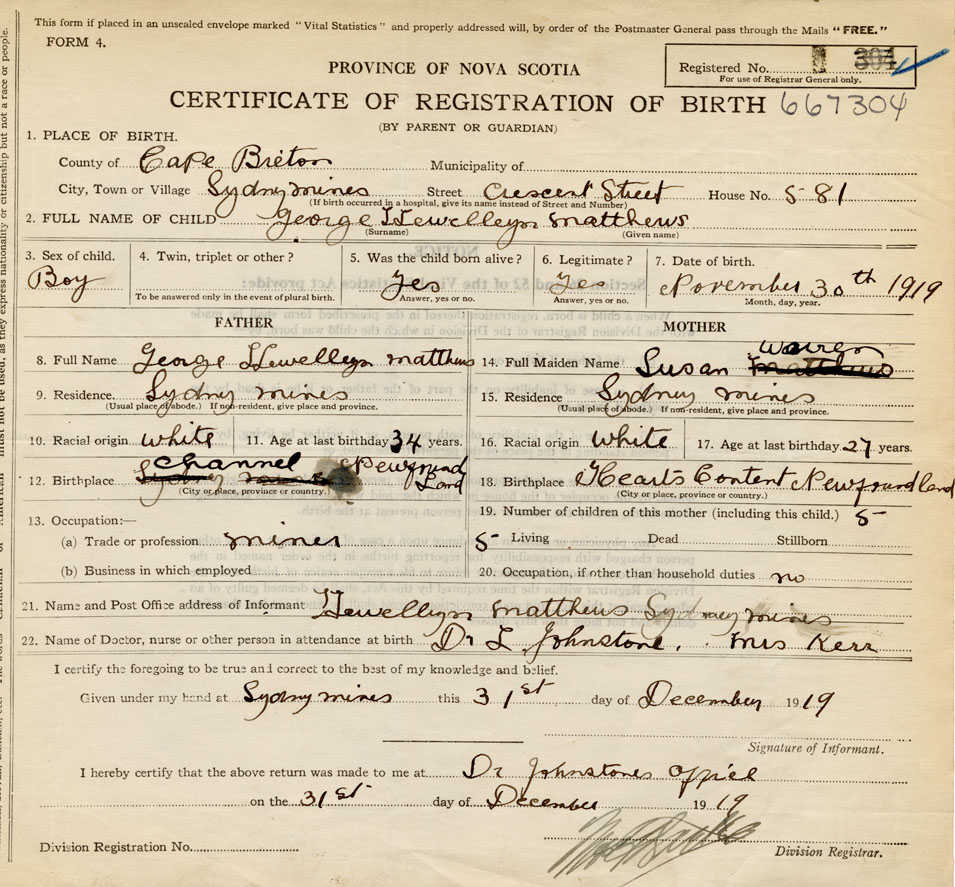 This form if placed in an unsealed envelope marked "Vital Statistics" and properly addressed will, by order of the Postmaster General pass through the Mails "FREE."
FORM 4.
Registered No. 304
For use of Registrar General only.
PROVINCE OF NOVA SCOTIA
CERTIFICATE OF REGISTRATION OF BIRTH 667304
(BY PARENT OR GUARDIAN)
1. PLACE OF BIRTH.
County of Cape Breton Municipality of
City, Town or Village Sydny mines Street Crescent Street House No. 581
(If birth occurred in a hospital, give its name instead of Street and Number)
2. FULL NAME OF CHILD George Llewellyn Matthews
(Surname) (Given name)
3. Sex of child. 4. Twin, triplet or other? 5. Was the child born alive? 6. Legitimate? 7. Date of birth.
Boy Yes Yes November 30th 1919
To be answered only in the event of plural birth. Answer, yes or no. Answer, yes or no. Month, day, year.
FATHER MOTHER
8. Full Name George Llewellyn Matthews 14. Full Maiden Name Susan Matthews Warren
9. Residence. Sydny mines 15. Residence Sydny mines
(Usual place of abode.) If non-resident, give place and province. (Usual place of abode.) If non-resident, give place and province.
10. Racial origin white 11. Age at last birthday 34 years. 16. Racial origin white 17. Age at last birthday 27 years.
12. Birthplace Channel Newfound Land 18. Birthplace Hearts Content Newfoundland
(City or place, province or country.) (City or place, province or country.)
13. Occupation:— 19. Number of children of this mother (including this child.) 5
(a) Trade or profession miner 5 Living Dead Stillborn
(b) Business in which employed 20. Occupation, if other than household duties no
21. Name and Post Office address of Informant Llewellyn Matthews Sydney mines
22. Name of Doctor, nurse or other person in attendance at birth Dr L Johnstone. Mrs Kerr
I certify the foregoing to be true and correct to the best of my knowledge and belief.
Given under my hand at Sydny mines this 31st day of December 1919
Signature of Informant.
I hereby certify that the above return was made to me at Dr Johnstones office
on the 31st day of December 1919
Division Registration No. Division Registrar.